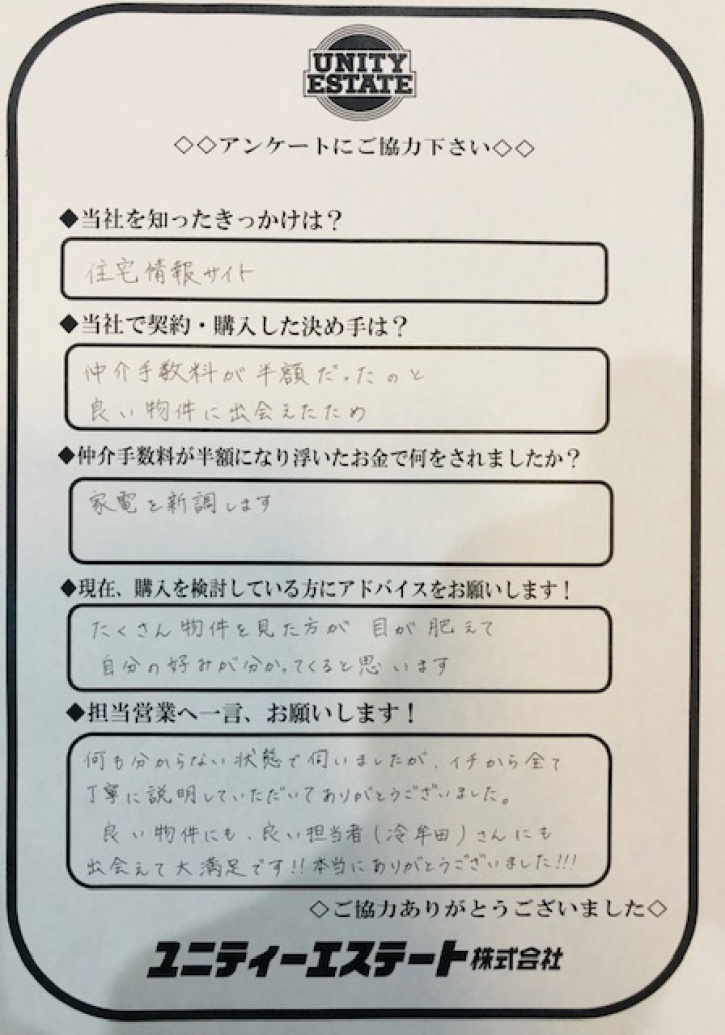 UNITY
ESTATE
◇◇アンケートにご協力下さい◇◇
◆当社を知ったきっかけは？
住宅情報サイト
◆当社で契約・購入した決め手は？
仲介手数料が半額だったのと
良い物件に出会えたため
◆仲介手数料が半額になり浮いたお金で何をされましたか？
家電を新調します
◆現在、購入を検討している方にアドバイスをお願いします！
たくさん物件を見た方が 目が肥えて
自分の好みが分かってくると思います
◆担当営業へ一言、お願いします！
何も分からない状態で伺いましたが、イチから全て
丁寧に説明していただいてありがとうございました。
良い物件にも、良い担当者(冷牟田)さんにも
出会えて大満足です!!本当にありがとうございました!!!
◇ご協力ありがとうございました◇
ユニティーエステート株式会社